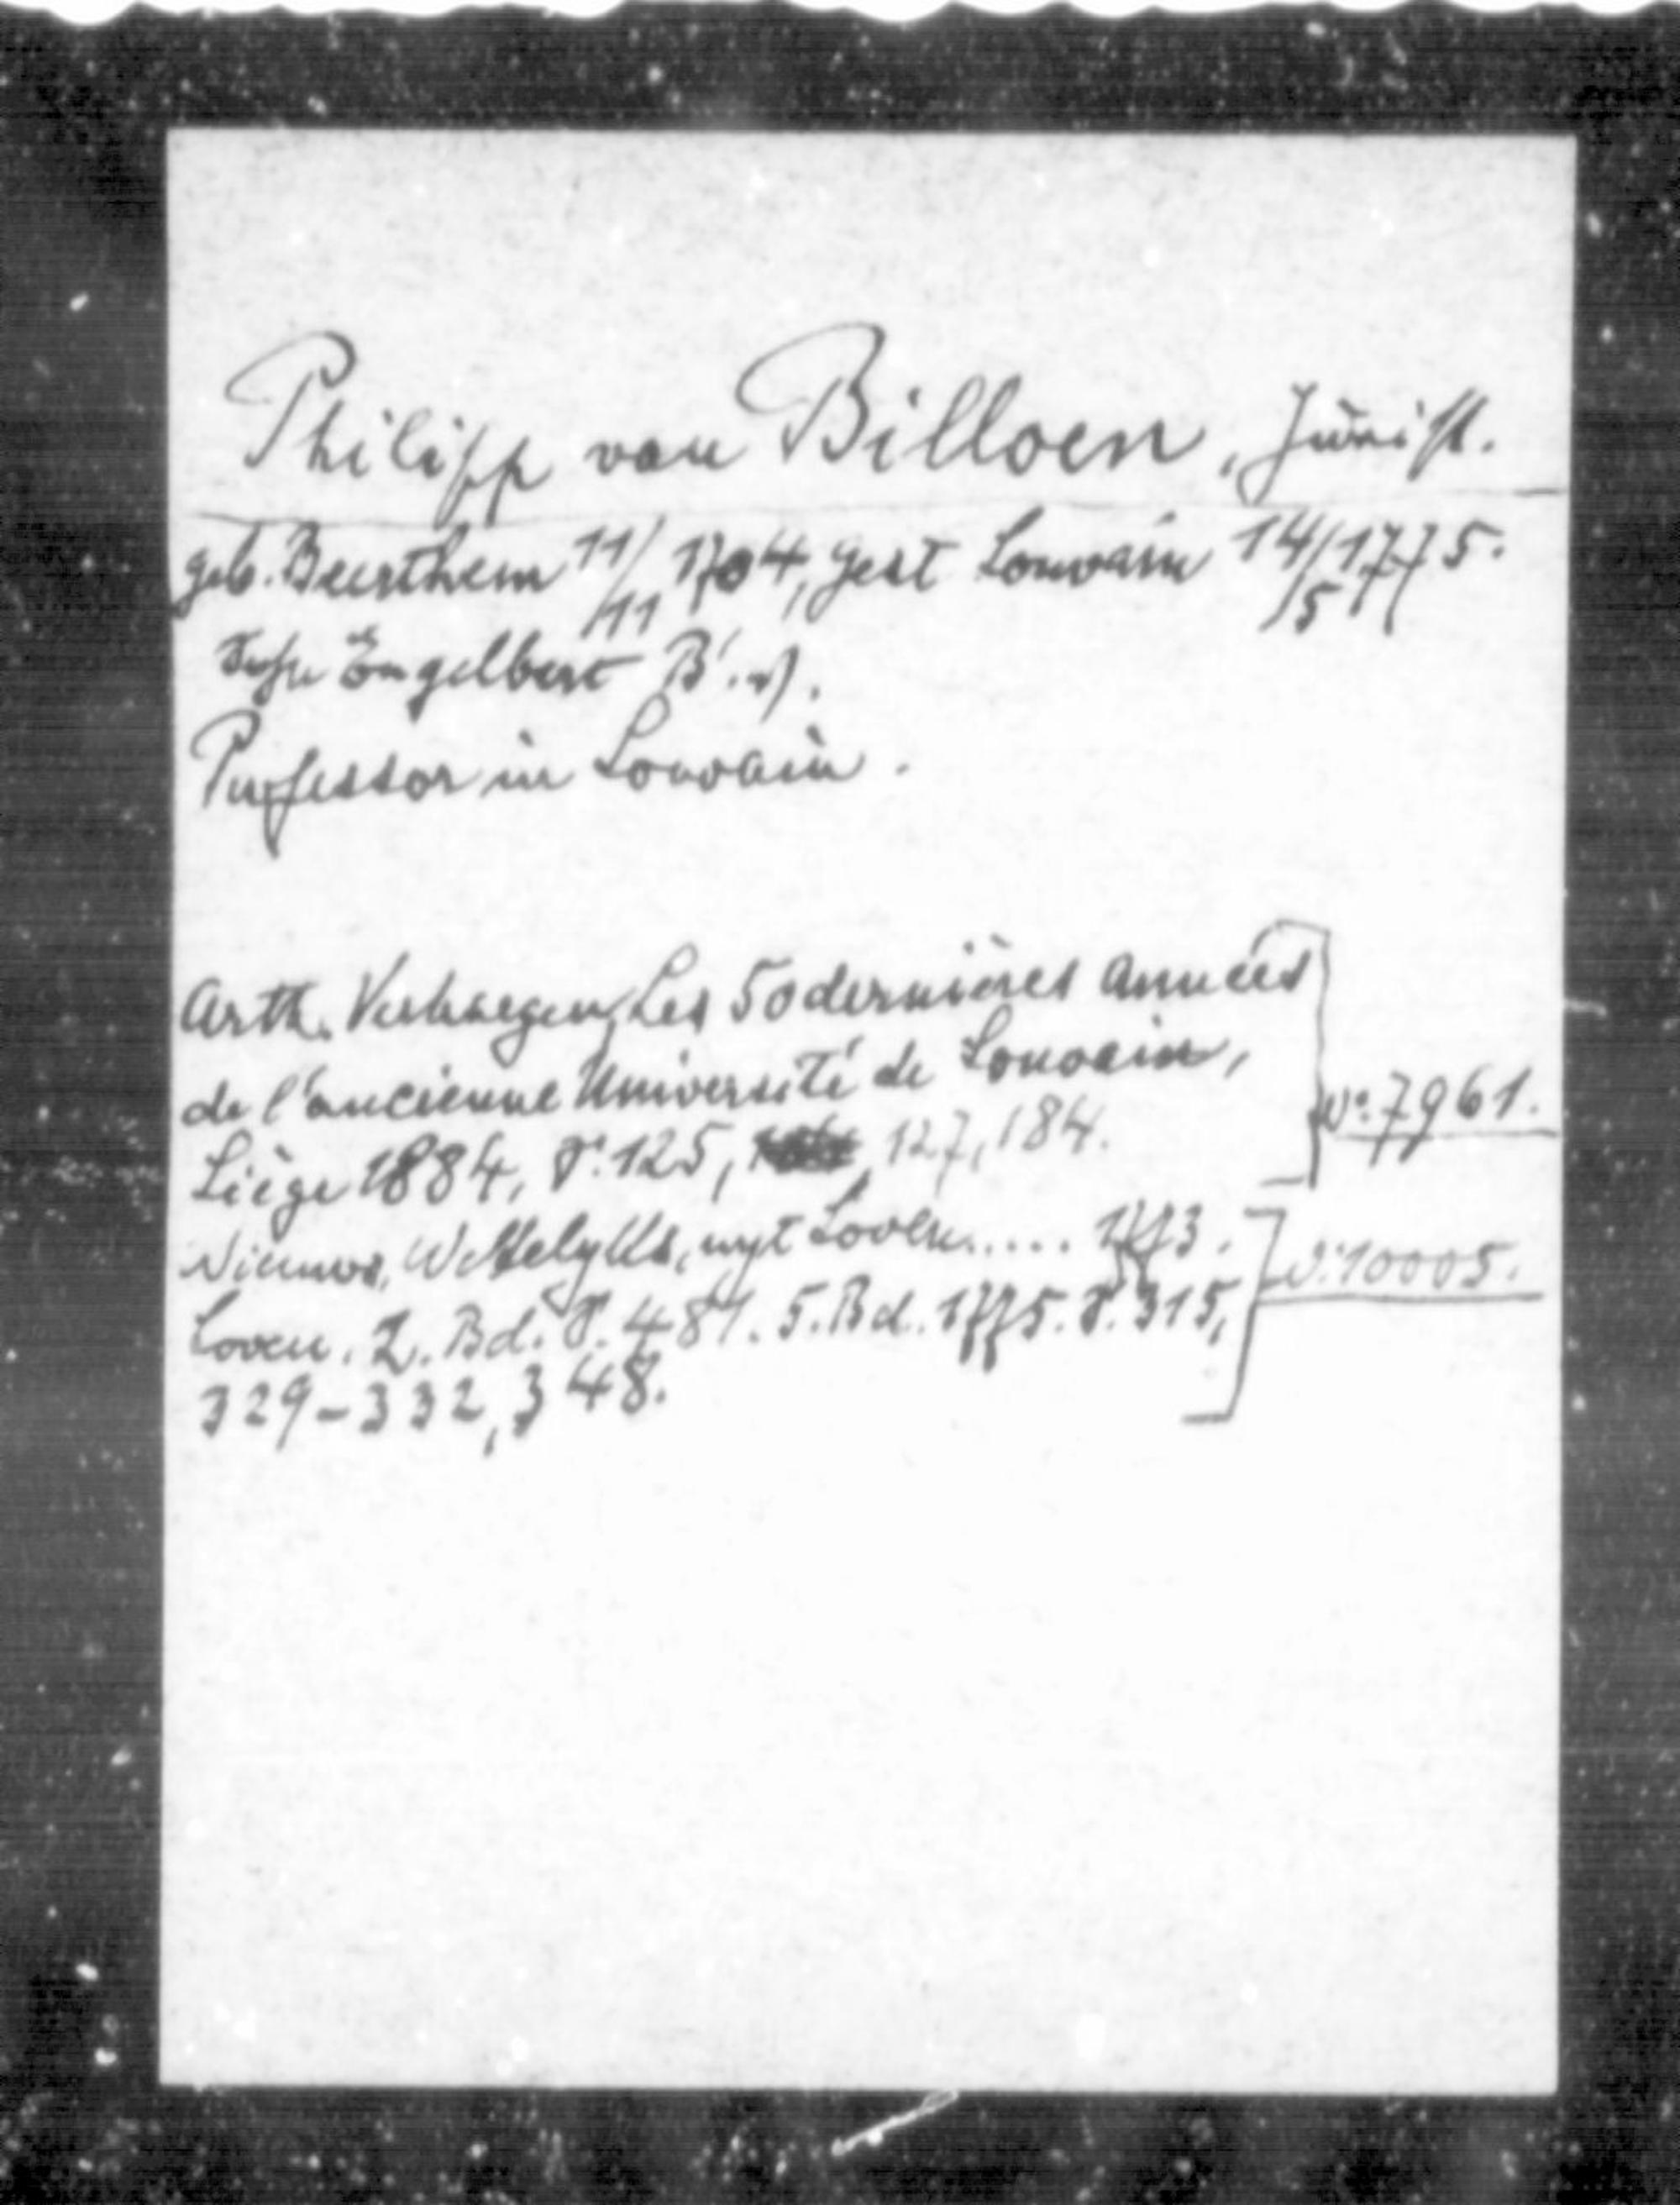 Philipp van Billoen, Jurist.
geb. Beerthem 11/11 1704, gest Louvain 14/5 1775.
Sohn Engelbert B's.
Professor in Louvain.
Arth. Verhaegen, Les 50 dernières Années
de l'ancienne Université de Louvain,
Liège 1884, P. 125, 127, 184.
N° 7961.
Nieuws, Wekelyks, uyt Loven..... 1773.
Loven. 2. Bd. P. 481. 5. Bd. 1775. P. 315,
329-332, 348.
N° 10005.